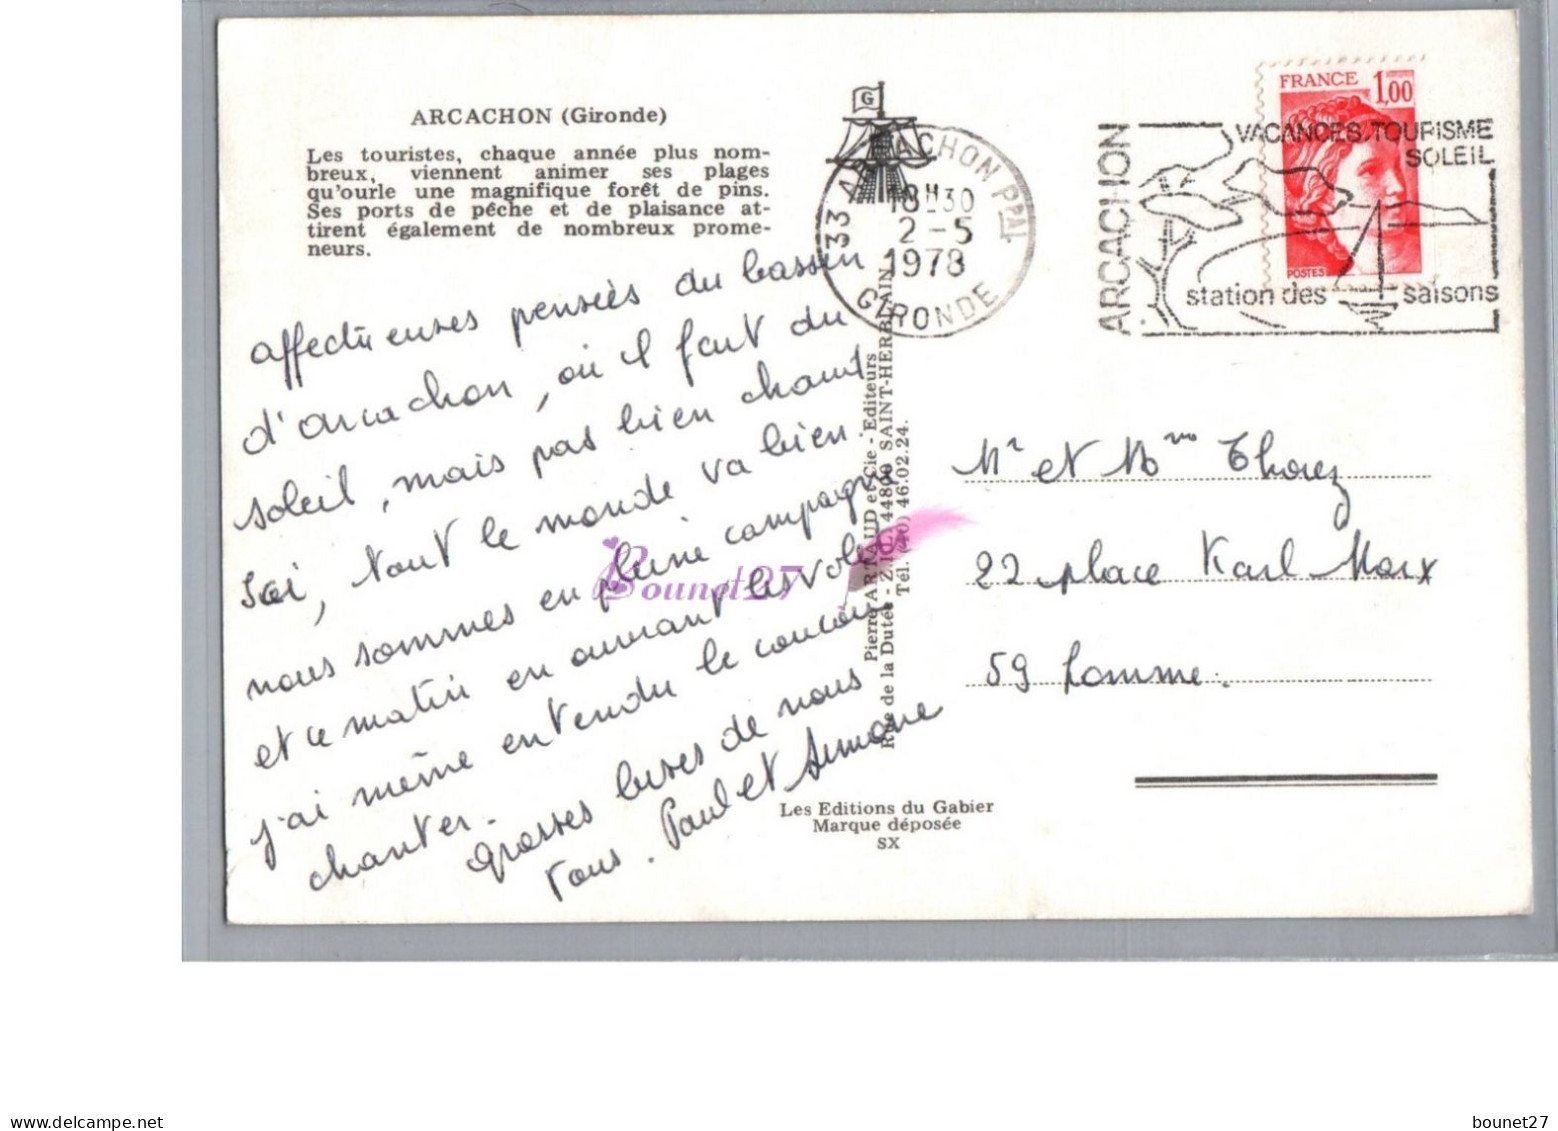 ARCACHON (Gironde)
Les touristes, chaque année plus nom-
breux, viennent animer ses plages
qu'ourle une magnifique forêt de pins.
Ses ports de pêche et de plaisance at-
tirent également de nombreux prome-
neurs.
affectueuses pensées du bassin
d'arcachon, où il fait du
soleil, mais pas bien chaud
Ici, tout le monde va bien.
nous sommes en pleine campagne
et ce matin en ouvrant les volets
j'ai même entendu le coucou
chanter.
grosses bises de nous
tous. Paul et Simone
G
33 ARCACHON PPAL
18H30
2-5
1978
GIRONDE
ARCACHON
VACANCES TOURISME
SOLEIL
station des saisons
FRANCE 1,00
POSTES
Pierre ARTAUD et Cie - Editeurs
Rue de la Dutée - Z.I.L. 44800 SAINT-HERBLAIN
Tél. (40) 46.02.24.
Mr et Mme Thorez
22 place Karl Marx
59 Lomme.
Les Editions du Gabier
Marque déposée
SX
Bounet27
www.delcampe.net
bounet27